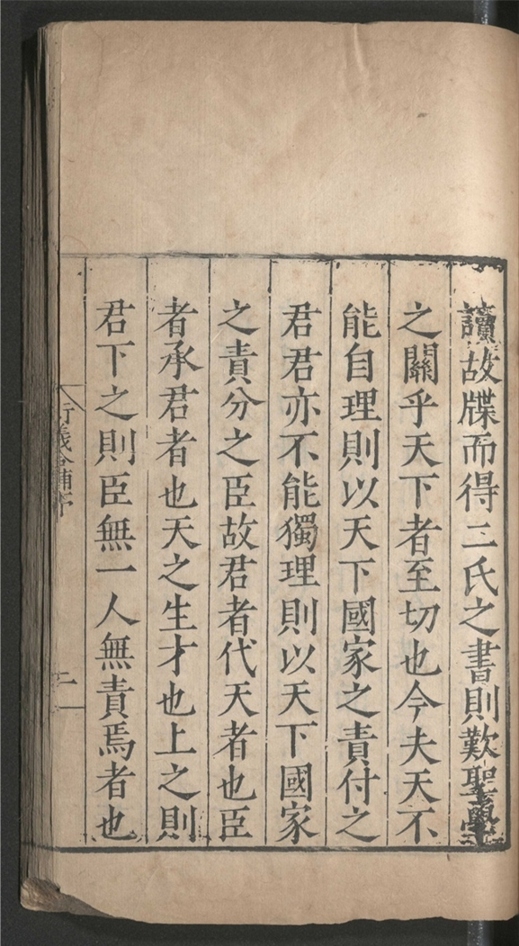 讀故牒而得二氏之書則歎聖學
之關乎天下者至切也今夫天不
能自理則以天下國家之責付之
君君亦不能獨理則以天下國家
之責分之臣故君者代天者也臣
者承君者也天之生才也上之則
君下之則臣無一人無責焉者也
衍義合補序
二